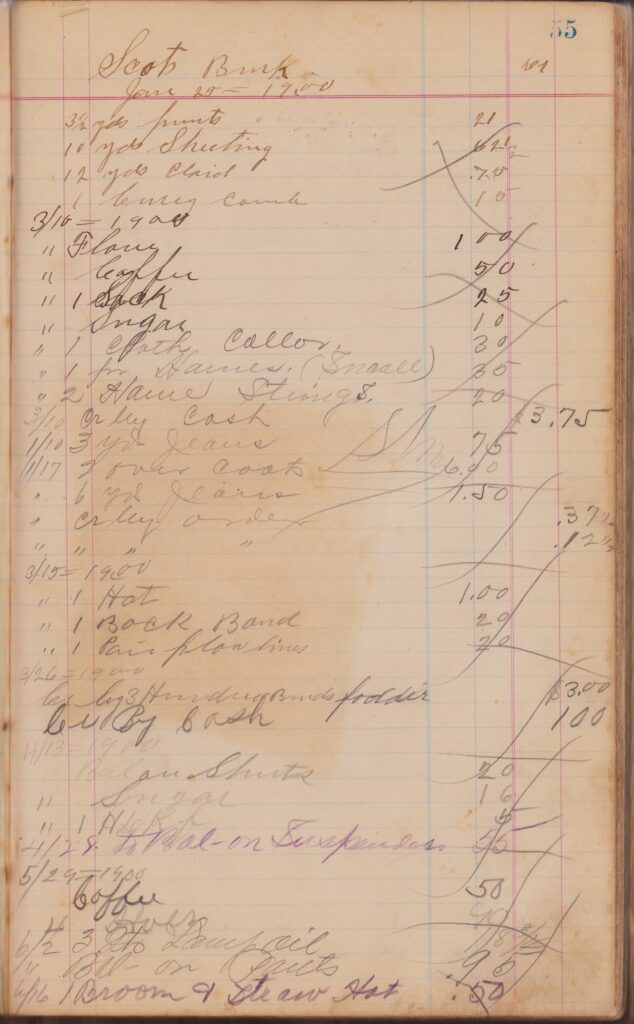 55
Scot Burk
Jan 25 = 1900
3½ yds prints 21
10 yds Sheeting 62½
12 yds Plaid .75
1 Curry comb 15
3/10 = 1900
" Flour 1 00
" Coffee 50
" 1 Sack 25
" Sugar 10
" 1 Cloth Collor. 30
" 1 pr Hames. (Small) 35
" 2 Hame Strings. 20
3/10 cr by Cash $3.75
1/10 3 yd Jeans 75
1/17 2 over coats 6.00
" 6 yd Jeans 1.50
" cr by order .37½
" " " " .12½
3/15 = 1900
" 1 Hat 1.00
" 1 Back Band 20
" 1 Pair plow lines 20
3/26 = 1900
Cr by 3 Hundred Bunds fodder $3.00
Cr By Cash 100
1900
Bal on Shirts 20
" Sugar
" 1 5
4/29 To Bal-on Suspenders 55
5/29 = 1900
Coffee 50
6/2 3 Lamp oil
" Bal- on Pants .95
6/16 1 Broom & Straw Hat .50